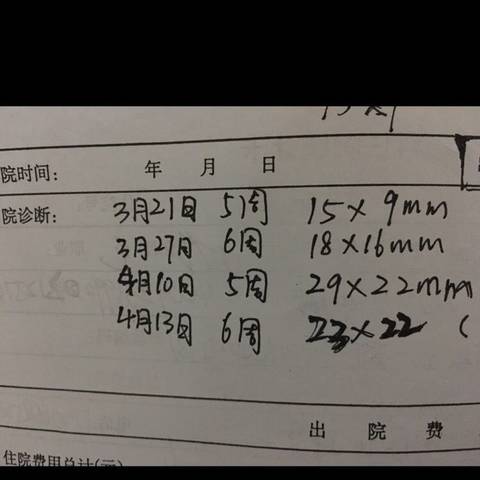 院时间: 年 月 日
院诊断: 3月21日 5周 15×9mm
3月27日 6周 18×16mm
4月10日 5周 29×22mm
4月13日 6周 23×22 (
出 院 费
住院费用总计(元)